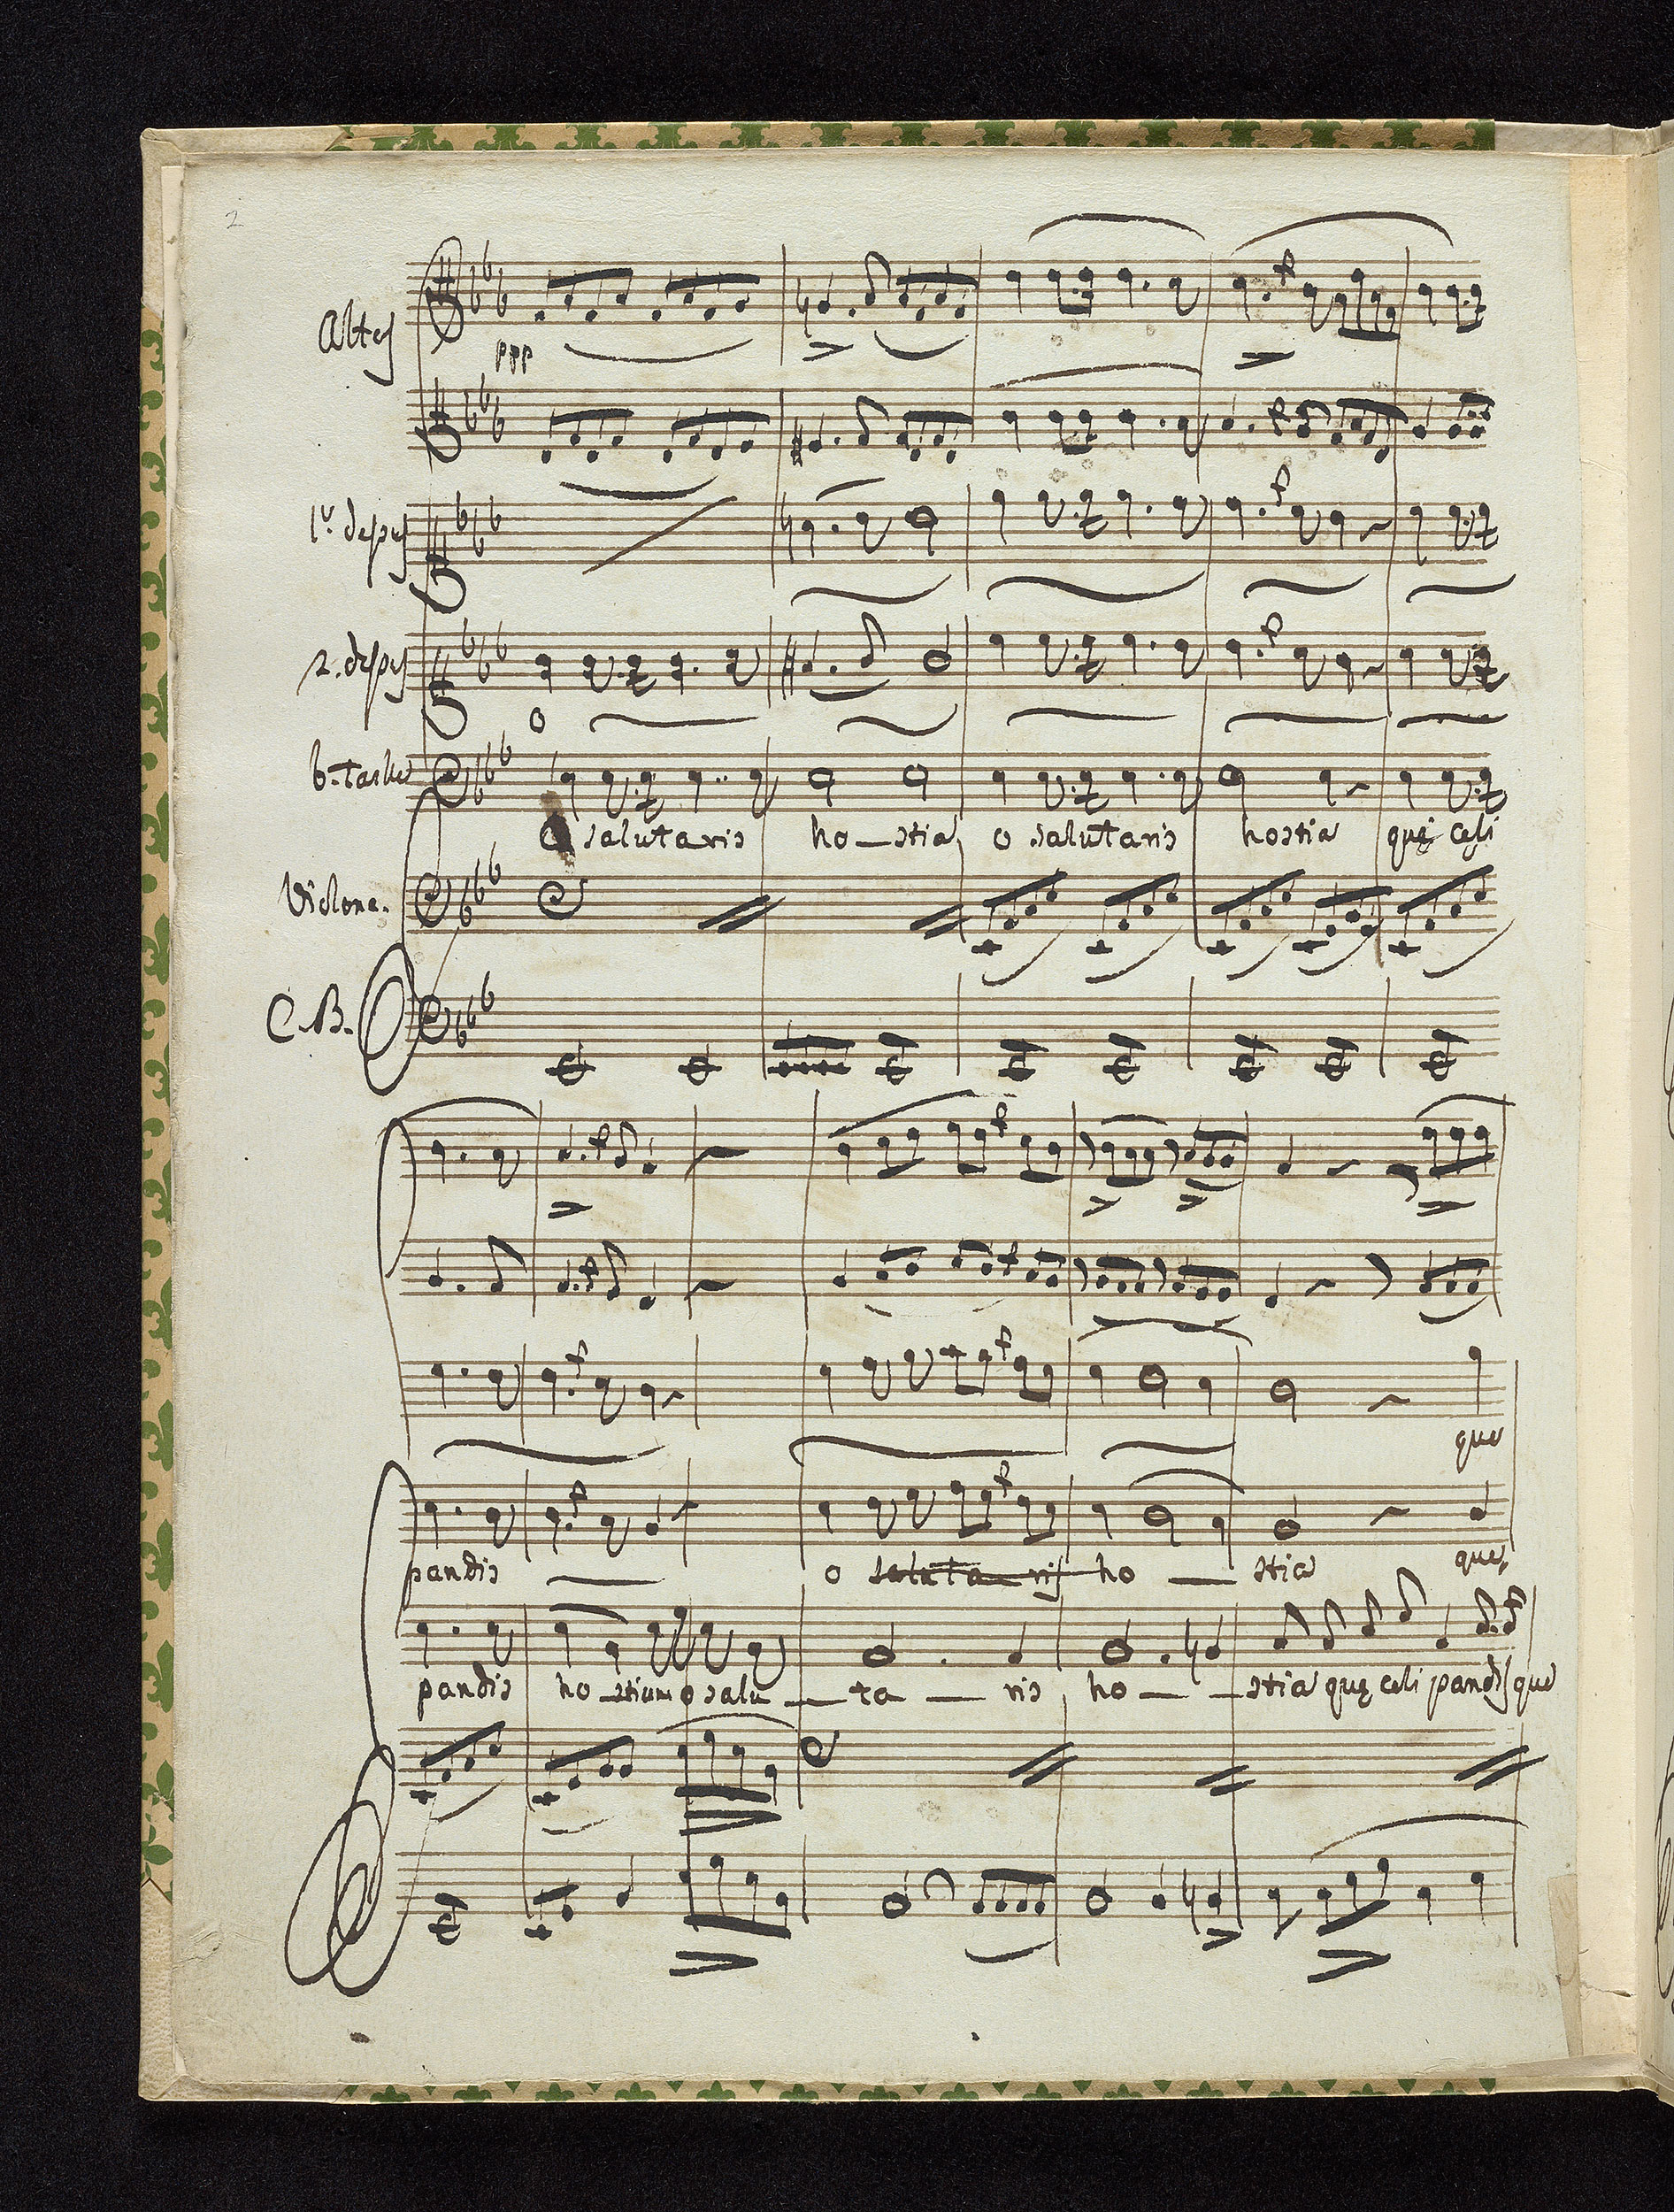 2
Altes
ppp
1.r dessus
2. dessus
O
b-taille
O salutaris ho-stia o salutaris hostia quę cęli
Violone.
C.B.
que
pandis o saluta-ris ho-stia que
pandis ho-stium o salu-ta-ris ho-stia quę celi pandis que